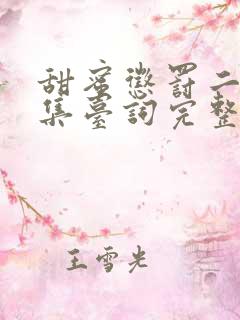 甜蜜懲罰二
集臺詞完整
王雪光